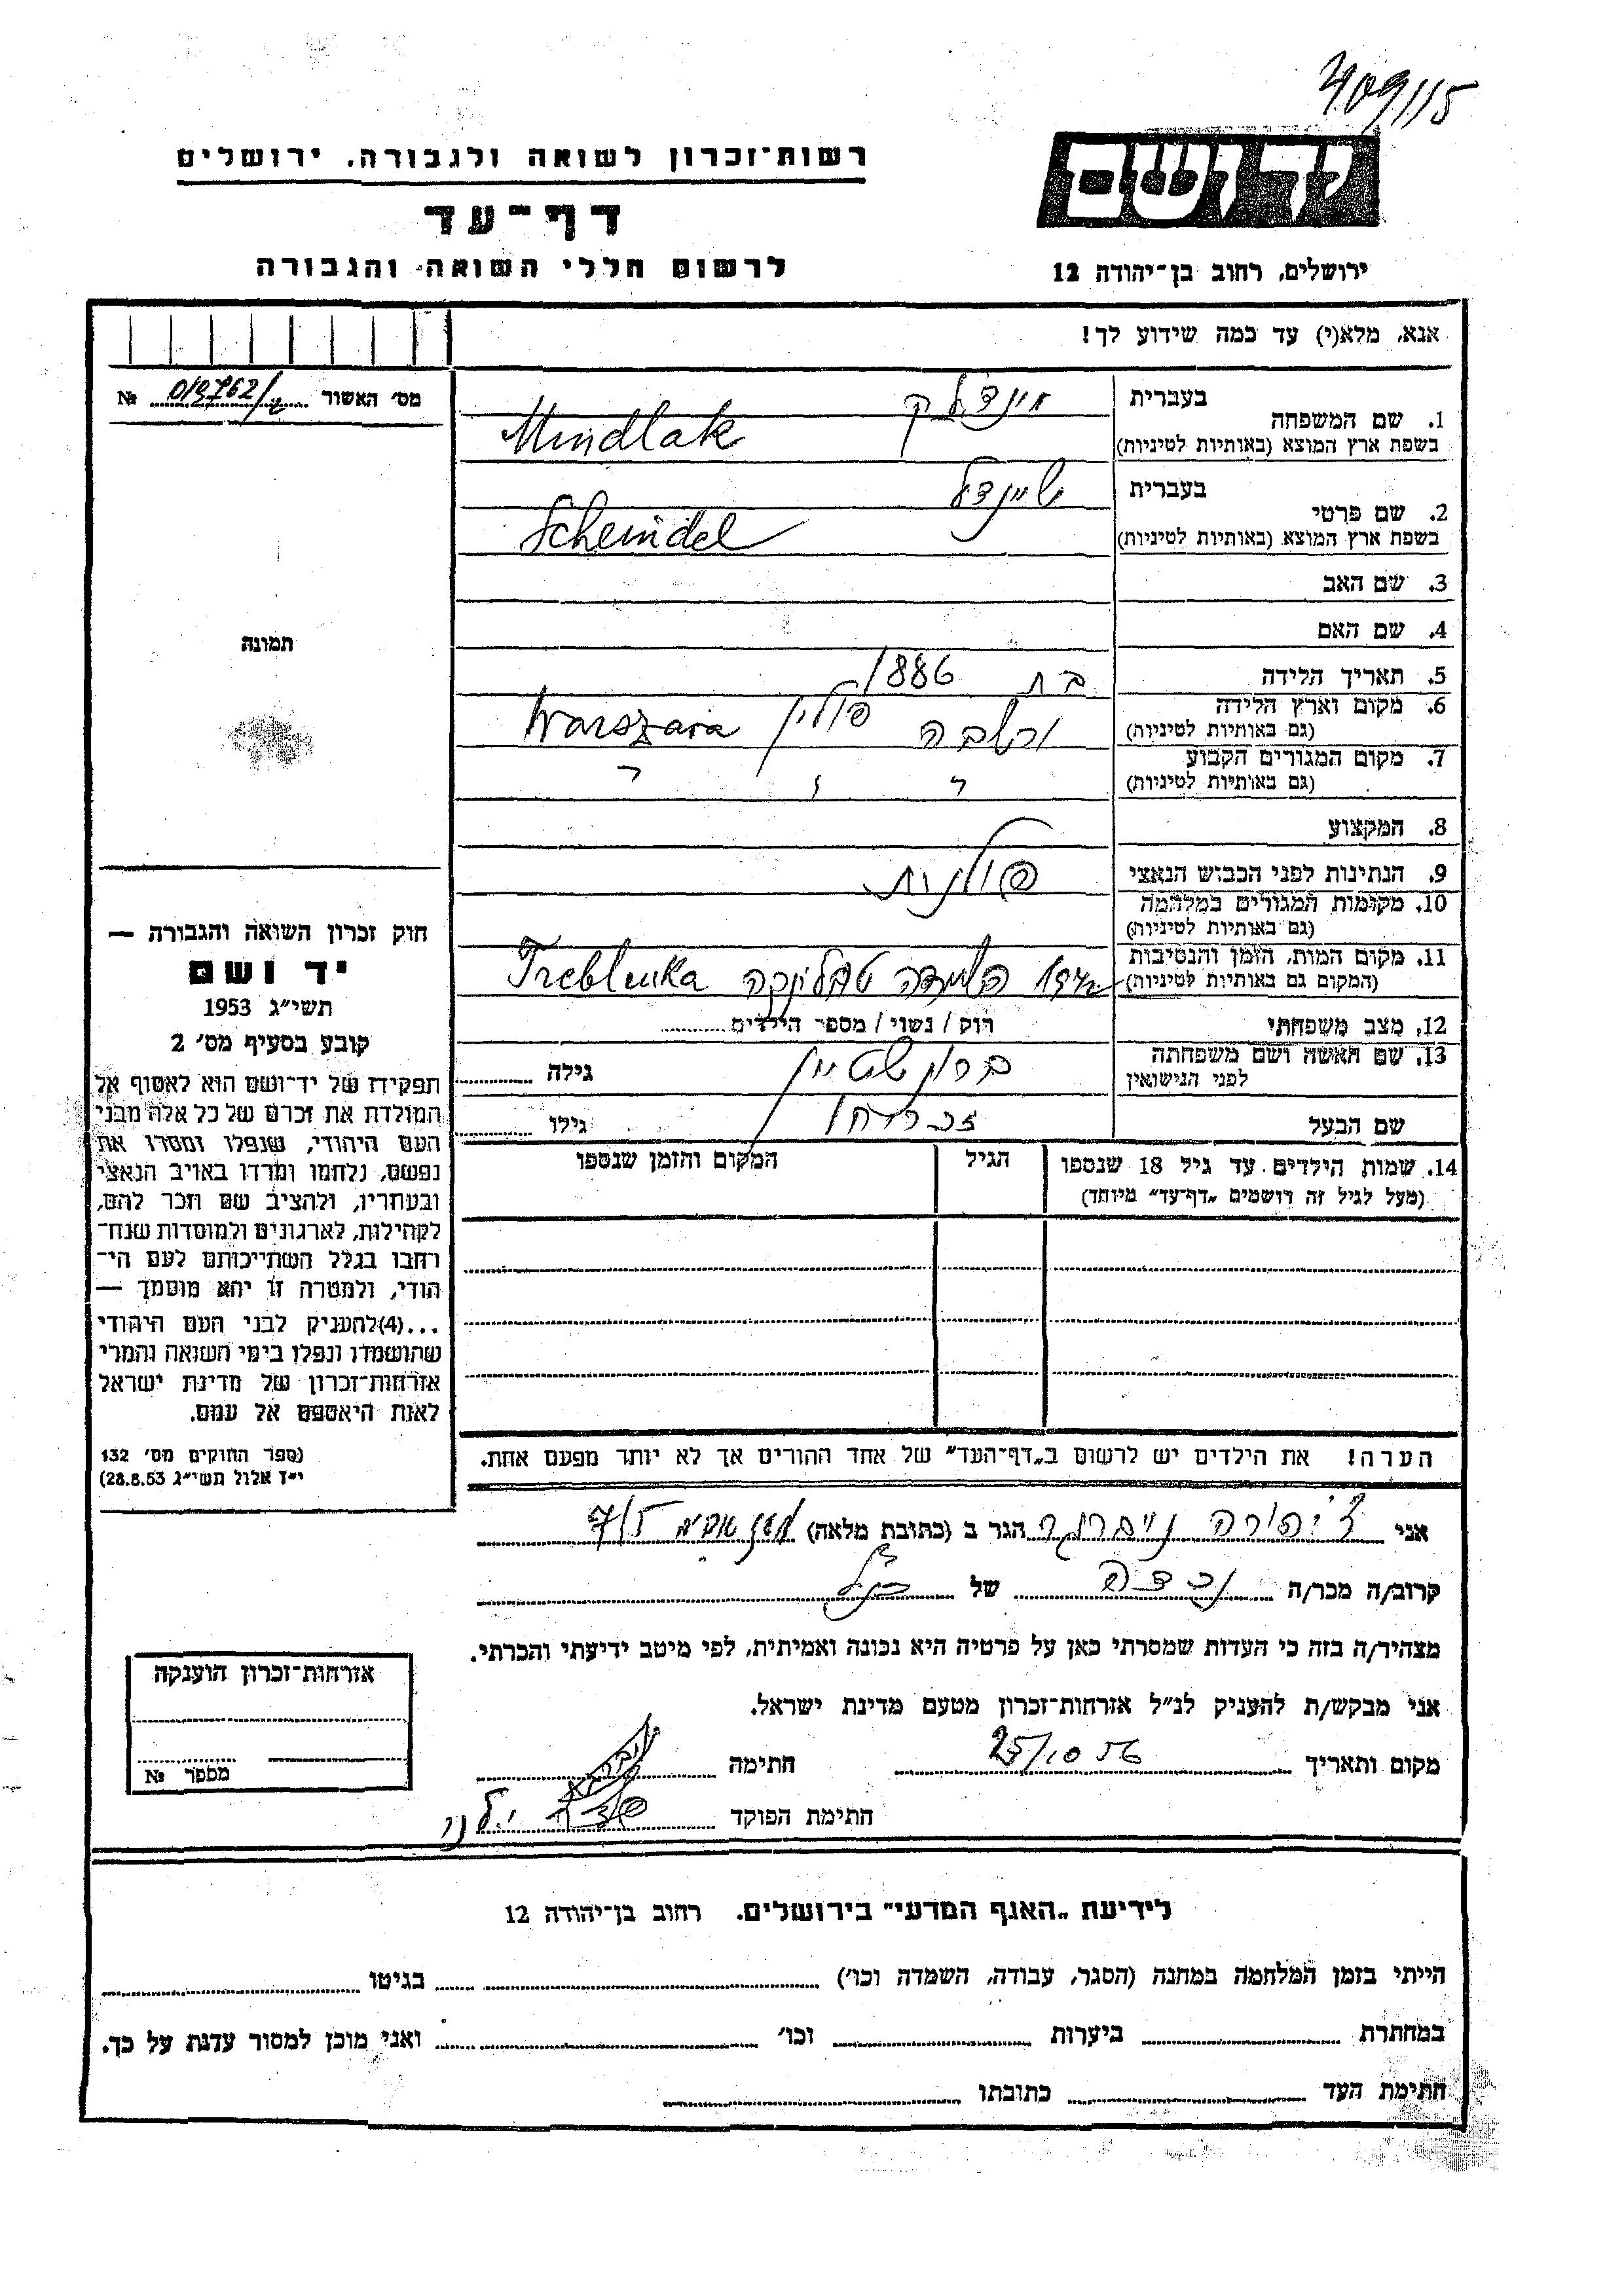 409/15
רשות־זכרון לשואה ולגבורה. ירושלים
יד ושם
דף־עד
לרשום חללי השואה והגבורה
ירושלים, רחוב בן־יהודה 12
אנא, מלא(י) עד כמה שידוע לך!
מס׳ האשור № 019762/
1. שם המשפחה
בעברית מינדלק
בשפת ארץ המוצא (באותיות לטיניות) Mindlak
2. שם פרטי
בעברית שיינדל
בשפת ארץ המוצא (באותיות לטיניות) Scheindel
3. שם האב
4. שם האם
תמונה
5. תאריך הלידה בת 1886
6. מקום וארץ הלידה
(גם באותיות לטיניות) ורשבה פולין Warszawa
7. מקום המגורים הקבוע
(גם באותיות לטיניות)
8. המקצוע
9. הנתינות לפני הכבוש הנאצי פולנית
10. מקומות המגורים במלחמה
(גם באותיות לטיניות)
11. מקום המות, הזמן והנסיבות
(המקום גם באותיות לטיניות) 1942 טרבלינקה Treblinka
12. מצב משפחתי רוק / נשוי / מספר הילדים
13. שם האשה ושם משפחתה
לפני הנישואין ברונשטיין גילה
שם הבעל גילו
14. שמות הילדים עד גיל 18 שנספו
(מעל לגיל זה רושמים „דף־עד” מיוחד)
הגיל
המקום והזמן שנספו
הערה! את הילדים יש לרשום ב„דף־העד” של אחד ההורים אך לא יותר מפעם אחת.
חוק זכרון השואה והגבורה —
יד ושם
תשי״ג 1953
קובע בסעיף מס׳ 2
תפקידו של יד־ושם הוא לאסוף אל
המולדת את זכרם של כל אלה מבני
העם היהודי, שנפלו ומסרו את
נפשם, נלחמו ומרדו באויב הנאצי
ובעוזריו, ולהציב שם וזכר להם,
לקהילות, לארגונים ולמוסדות שנח־
רבו בגלל השתייכותם לעם הי־
הודי, ולמטרה זו יהא מוסמך —
...(4)להעניק לבני העם היהודי
שהושמדו ונפלו בימי השואה והמרי
אזרחות־זכרון של מדינת ישראל
לאות היאספם אל עמם.
(ספר החוקים מס׳ 132
י״ז אלול תשי״ג 28.8.53)
אני ציפורה הגר ב (כתובת מלאה)
קרוב/ה מכר/ה נכדה של הנ״ל
מצהיר/ה בזה כי העדות שמסרתי כאן על פרטיה היא נכונה ואמיתית, לפי מיטב ידיעתי והכרתי.
אני מבקש/ת להעניק לנ״ל אזרחות־זכרון מטעם מדינת ישראל.
מקום ותאריך 25/10 56 חתימה
חתימת הפוקד
אזרחות־זכרון הוענקה
מספר №
לידיעת „האגף המדעי” בירושלים. רחוב בן־יהודה 12
הייתי בזמן המלחמה במחנה (הסגר, עבודה, השמדה וכו׳) בגיטו
במחתרת ביערות וכו׳ ואני מוכן למסור עדות על כך.
חתימת העד כתובתו